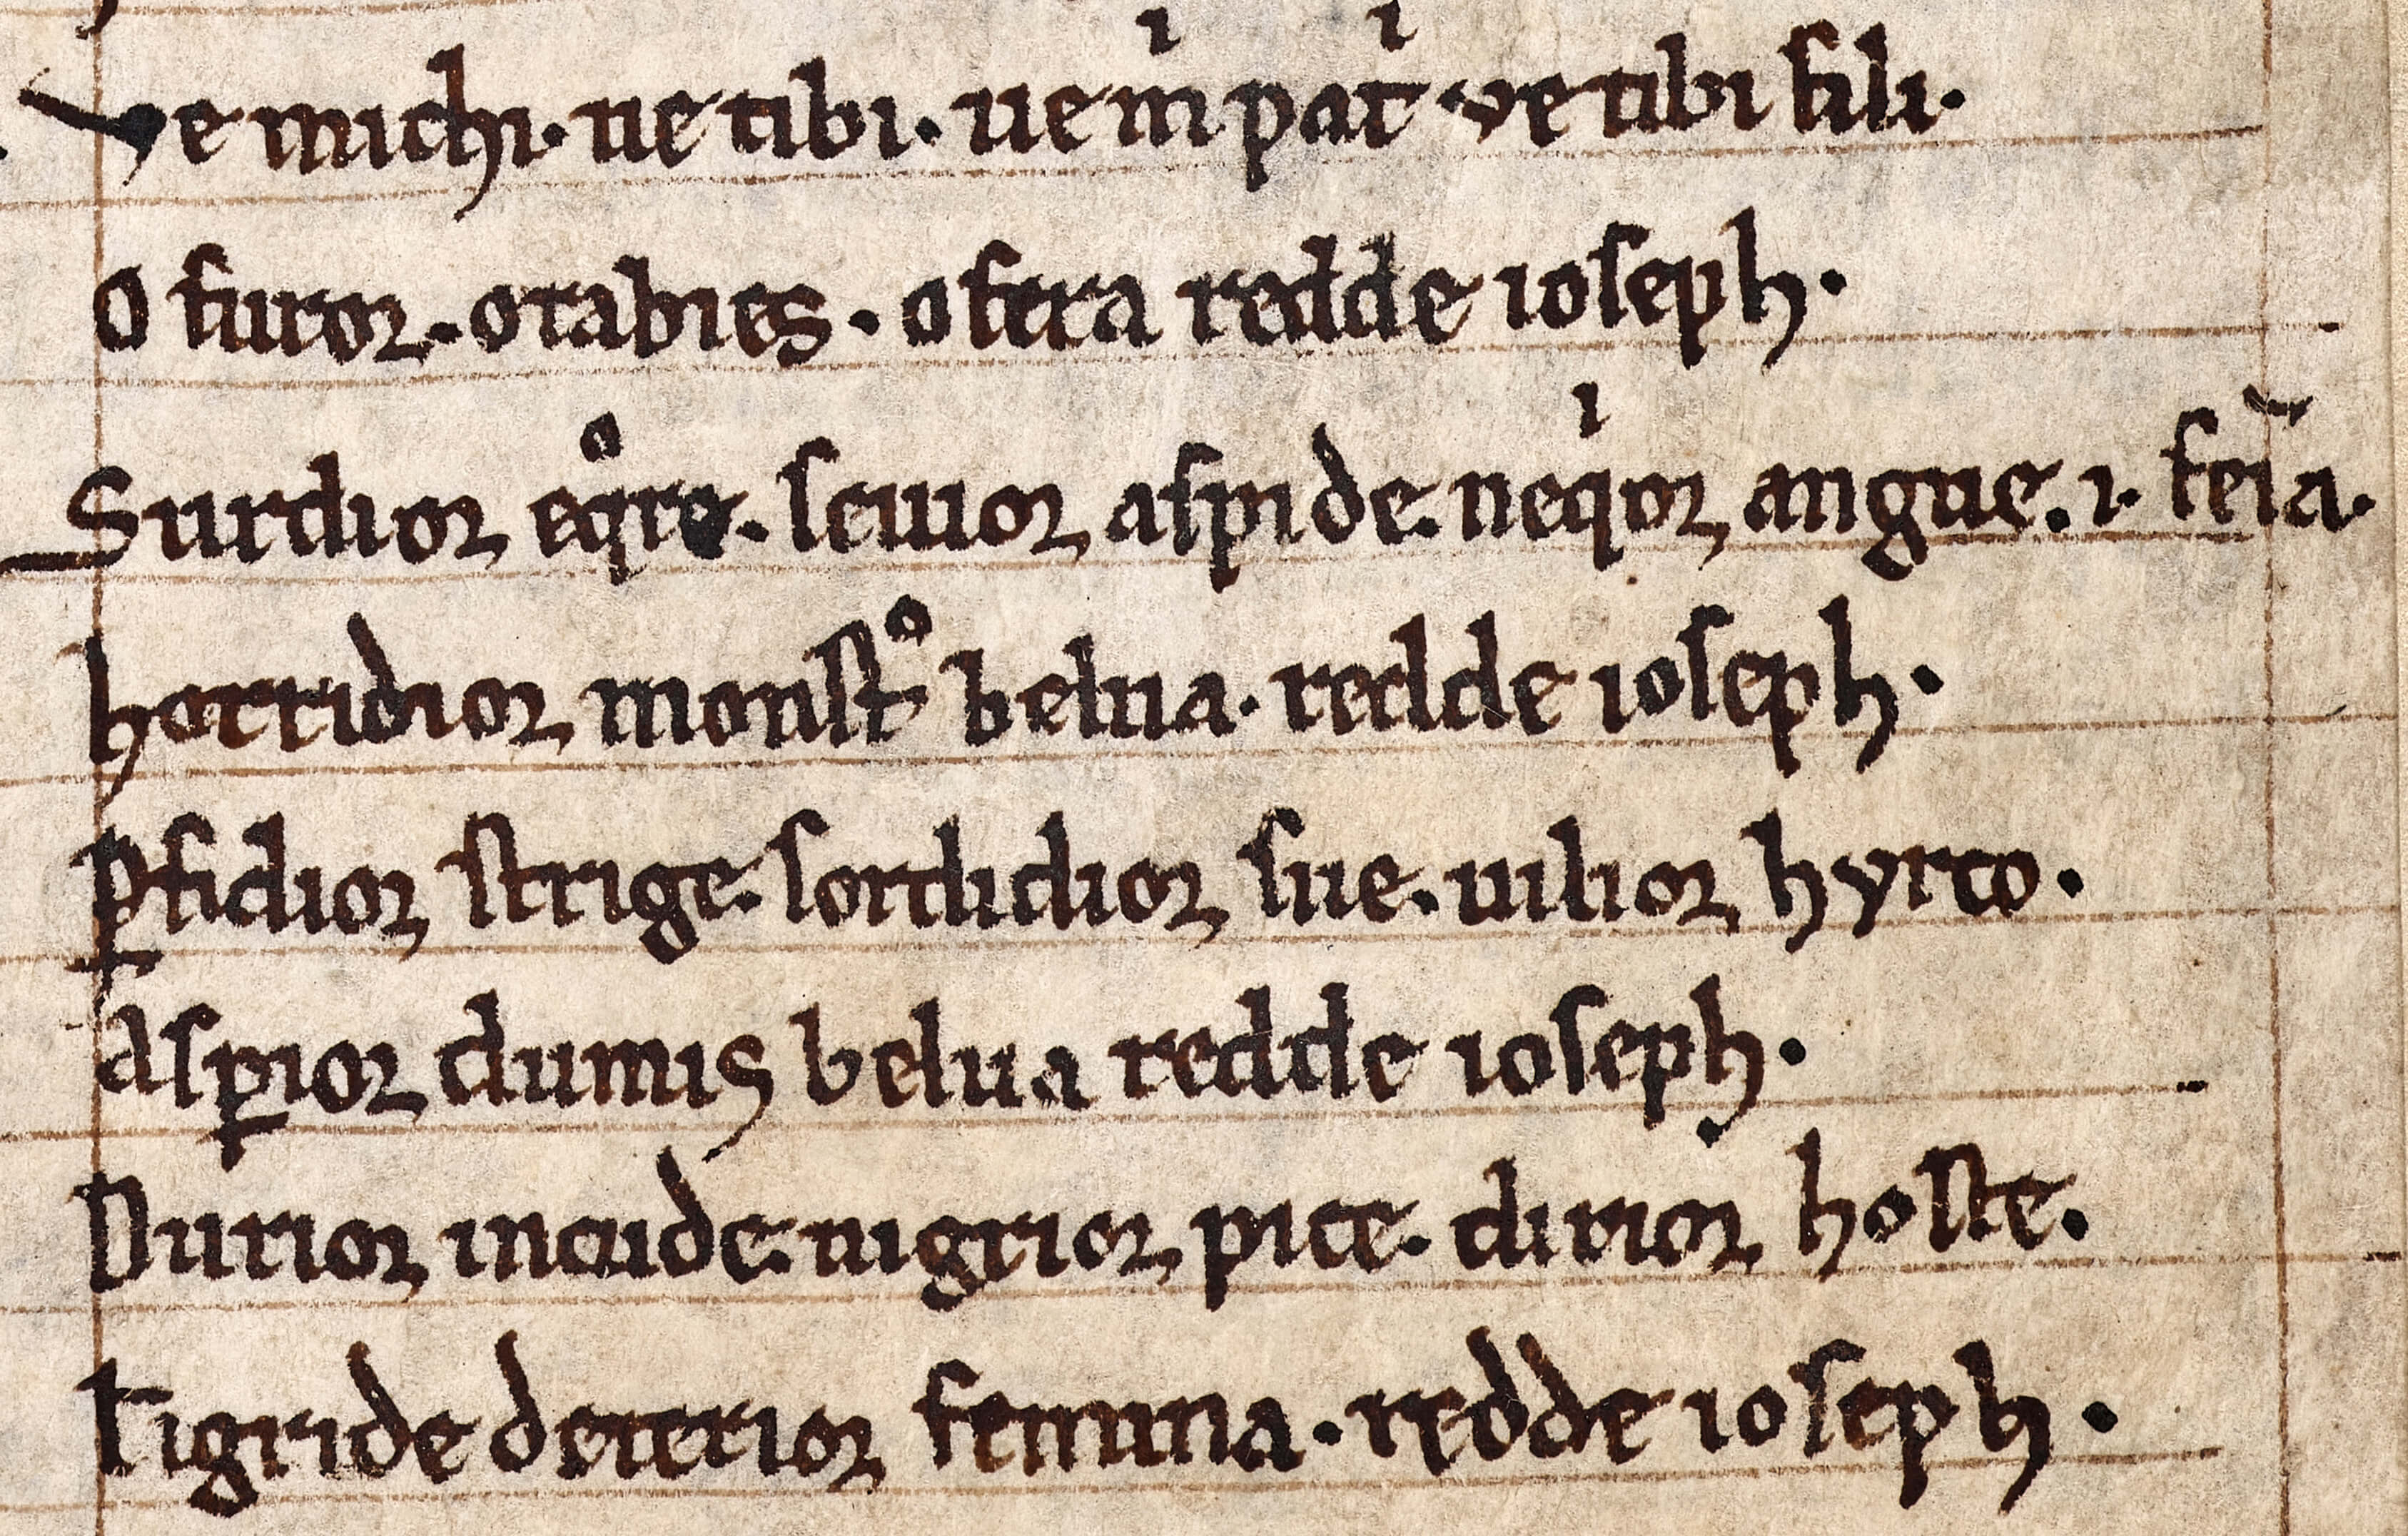 Ve michi. ue tibi. ue mͥ patͥ ve tibi fili.
O furor. o rabies. o fera redde ioseph.
Surdior eqͦre. seuior aspide. neqͥor angue. i. fei̅a.
horridior monstͦ belua. redde ioseph.
ꝑfidior strige. sordidior sue. uilior hyrco.
Asꝑior dumis belua redde ioseph.
Durior incude. nigrior pice. dirior hoste.
Tigride deterior femina. redde ioseph.